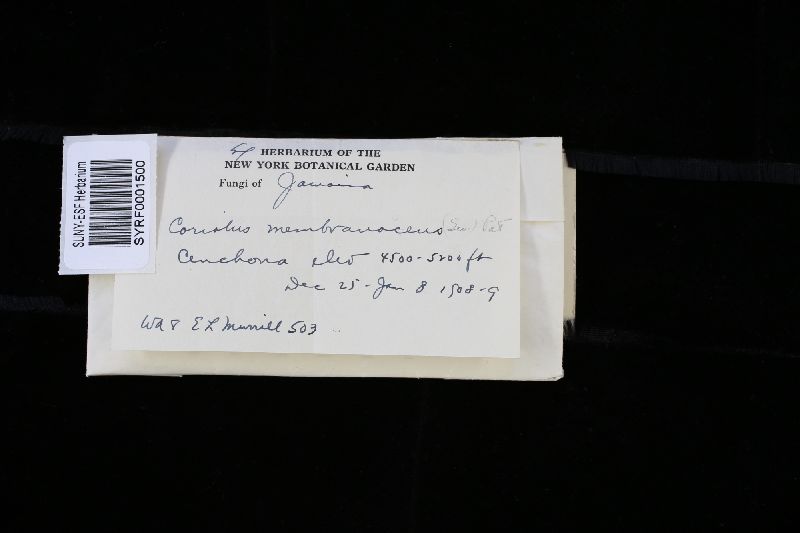 SUNY-ESF Herbarium
SYRF0001500
Ex HERBARIUM OF THE
NEW YORK BOTANICAL GARDEN
Fungi of Jamaica
Coriolus membranaceus (Sw.) Pat
Cinchona elev 4500-5200 ft
Dec 25 - Jan 8 1908-9
WA & E L Murrill 503